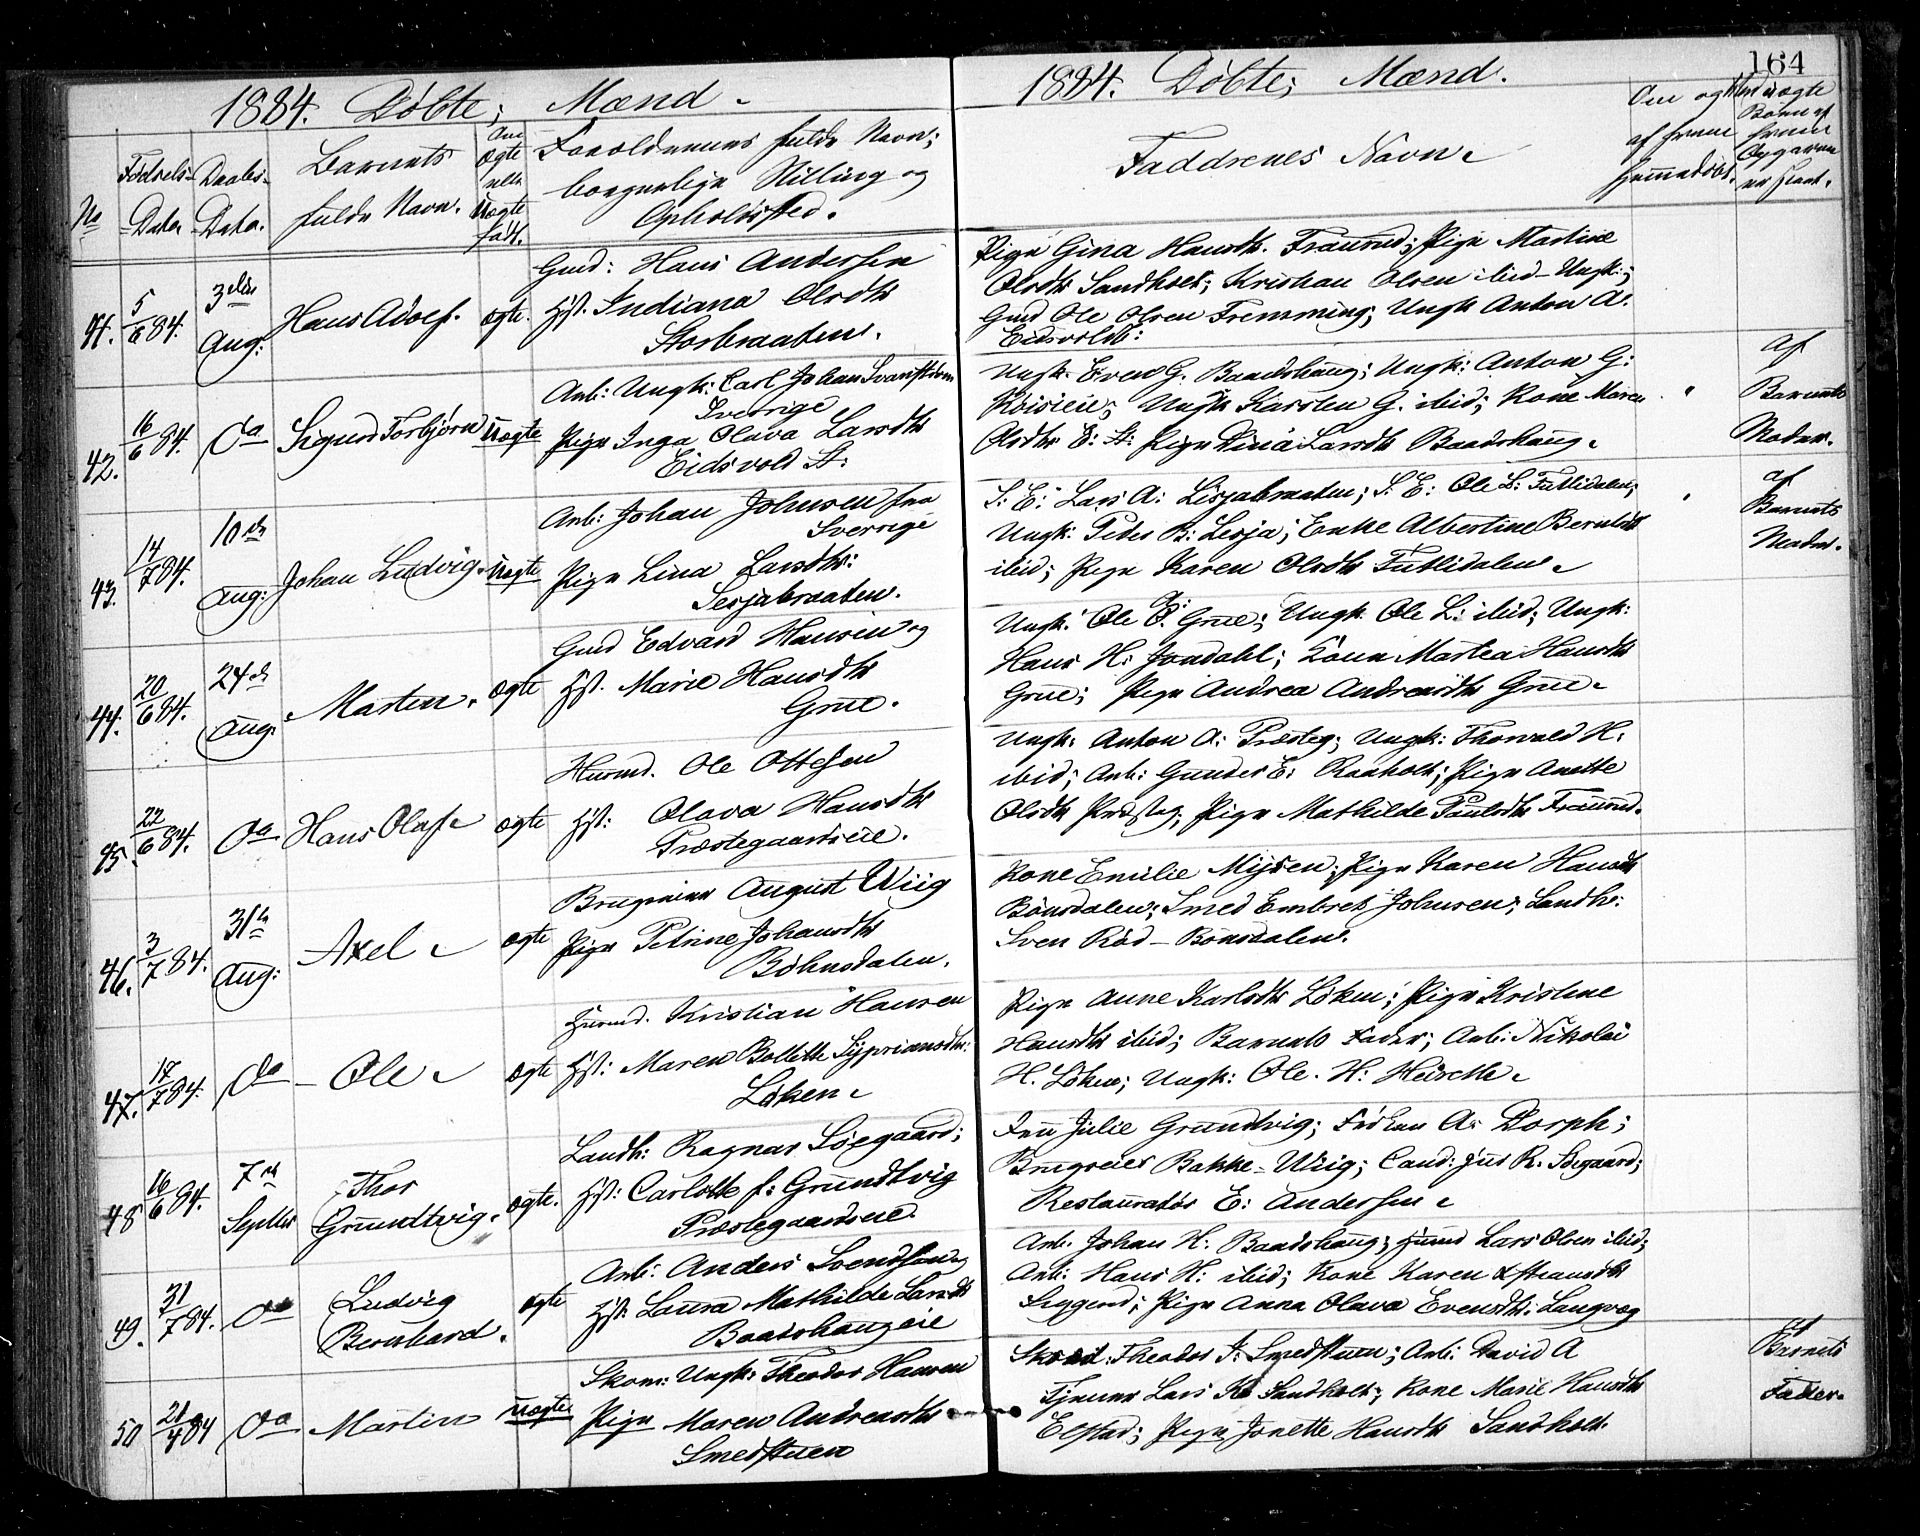 164
1884. Døbte, Mænd.
No
Fødsels-
Data.
Daabs-
Data.
Barnets
fulde Navn.
Om
ægte
eller
uægte
født.
Forældrenes fulde Navn,
borgerlige Stilling og
Opholdssted.
41.
5/6 84.
3die
Aug:
Hans Adolf.
ægte.
Gmd: Hans Andersen
Hst. Indiana Olsdtr
Storbraaten.
42.
16/6 84.
Do
Sigurd Torbjørn
uægte
Arb: Ungk: Carl Johan Svanstrøm
Sverrige
Pige Inga Olava Larsdtr
Eidsvold St:
43.
14/7 84.
10de
Aug:
Johan Ludvig.
uægte
Arb: Johan Johnsen fra
Sverrige
Pige Lina Larsdtr:
Lesjabraaten.
44.
20/6 84.
24de
Aug:
Marten.
ægte
Gmd Edvard Hansen og
Hst. Marie Hansdtr
Grue.
45.
22/6 84.
Do
Hans Olaf.
ægte
Husmd. Ole Ottesen
Hst: Olava Hansdtr
Præstegaardseie.
46.
3/7 84.
31te
Aug:
Axel.
ægte
Brugseier August Wiig
Pige Petrine Johansdtr
Bøhnsdalen.
47.
17/7 84.
Do
Ole.
ægte
Husmd. Kristian Hansen
Hst: Maren Bollette Sypriansdtr:
Løken.
48
16/6 84.
7de
Septbr
Thor
Grundtvig.
ægte.
Landh: Ragnar Søegaard;
Hst: Carlotte f: Grundtvig
Præstegaardseie.
49.
31/7 84.
Do
Ludvig
Bernhard.
ægte
Arb: Anders Svendsen og
Hst. Laura Mathilde Larsdtr
Baadshaugeie
50
21/4 84
Do
Martin
uægte
Skom: Ungk: Theodor Hansen
Pige Maren Andreasdtr
Smedstuen
1884. Døbte, Mænd.
Faddrenes Navn.
Pige Gina Hansdtr. Fraunud; Pige Martine
Olsdtr Sandholt; Kristian Olsen ibid - Ungk:;
Gmd Ole Olsen Fremming; Ungk Anton A.
Eidsvold:
Ungk. Even G. Baadshaug; Ungk: Anton G:
Ungk Karsten G. ibid; Kone Maren
Olsdtr E: St: Pige Dina Larsdtr Baadshaug.
af
Barnets
Moder.
S: E: Lars A: Lesjabraaten; S: E: Ole L: Futlidalen;
Ungk: Peder B: Lesja; Enke Albertine Berntsdtr
ibid; Pige Karen Olsdtr Futlidalen.
af
Barnets
Moder.
Ungk: Ole O. Grue; Ungk. Ole L: ibid; Ungk:
Hans H: Jondahl; Kone Martea Hansdtr
Grue; Pige Andrea Andreasdtr Grue.
Ungk: Anton A: Præsteg; Ungk: Thorvald H.
ibid; Arb: Gunder E: Raaholt; Pige Anette
Olsdtr Præsteg; Pige Mathilde Paulsdtr Fraunud.
Kone Emilie Myhren; Pige Karen Hansdtr
Bønsdalen; Smed Embret Johnsen; Landh:
Sven Rød - Bønsdalen.
Pige Anne Karlsdtr Løken; Pige Kristine
Hansdtr ibid; Barnets Fader; Arb: Nikolai
H. Løken; Ungk: Ole. H:
Fru Julie Grundtvig; Frøken A. Dorph;
Brugseier Bakke - Wiig; Cand: jus R. Søegaard;
Restauratør E: Andersen.
Arb. Johan H: Baadshaug; Husmd Lars Olsen ibid;
Arb: Hans H: ibid; Kone Karen
Pige Anna Olava Evensdtr: Langvæg
Theodor J: Smedstuen; Arb: David A
Tjener Lars K. Sandholt; Kone Marie Hansdtr
Elstad; Pige Jonette Hansdtr Sandholt.
af
Barnets
Fader.